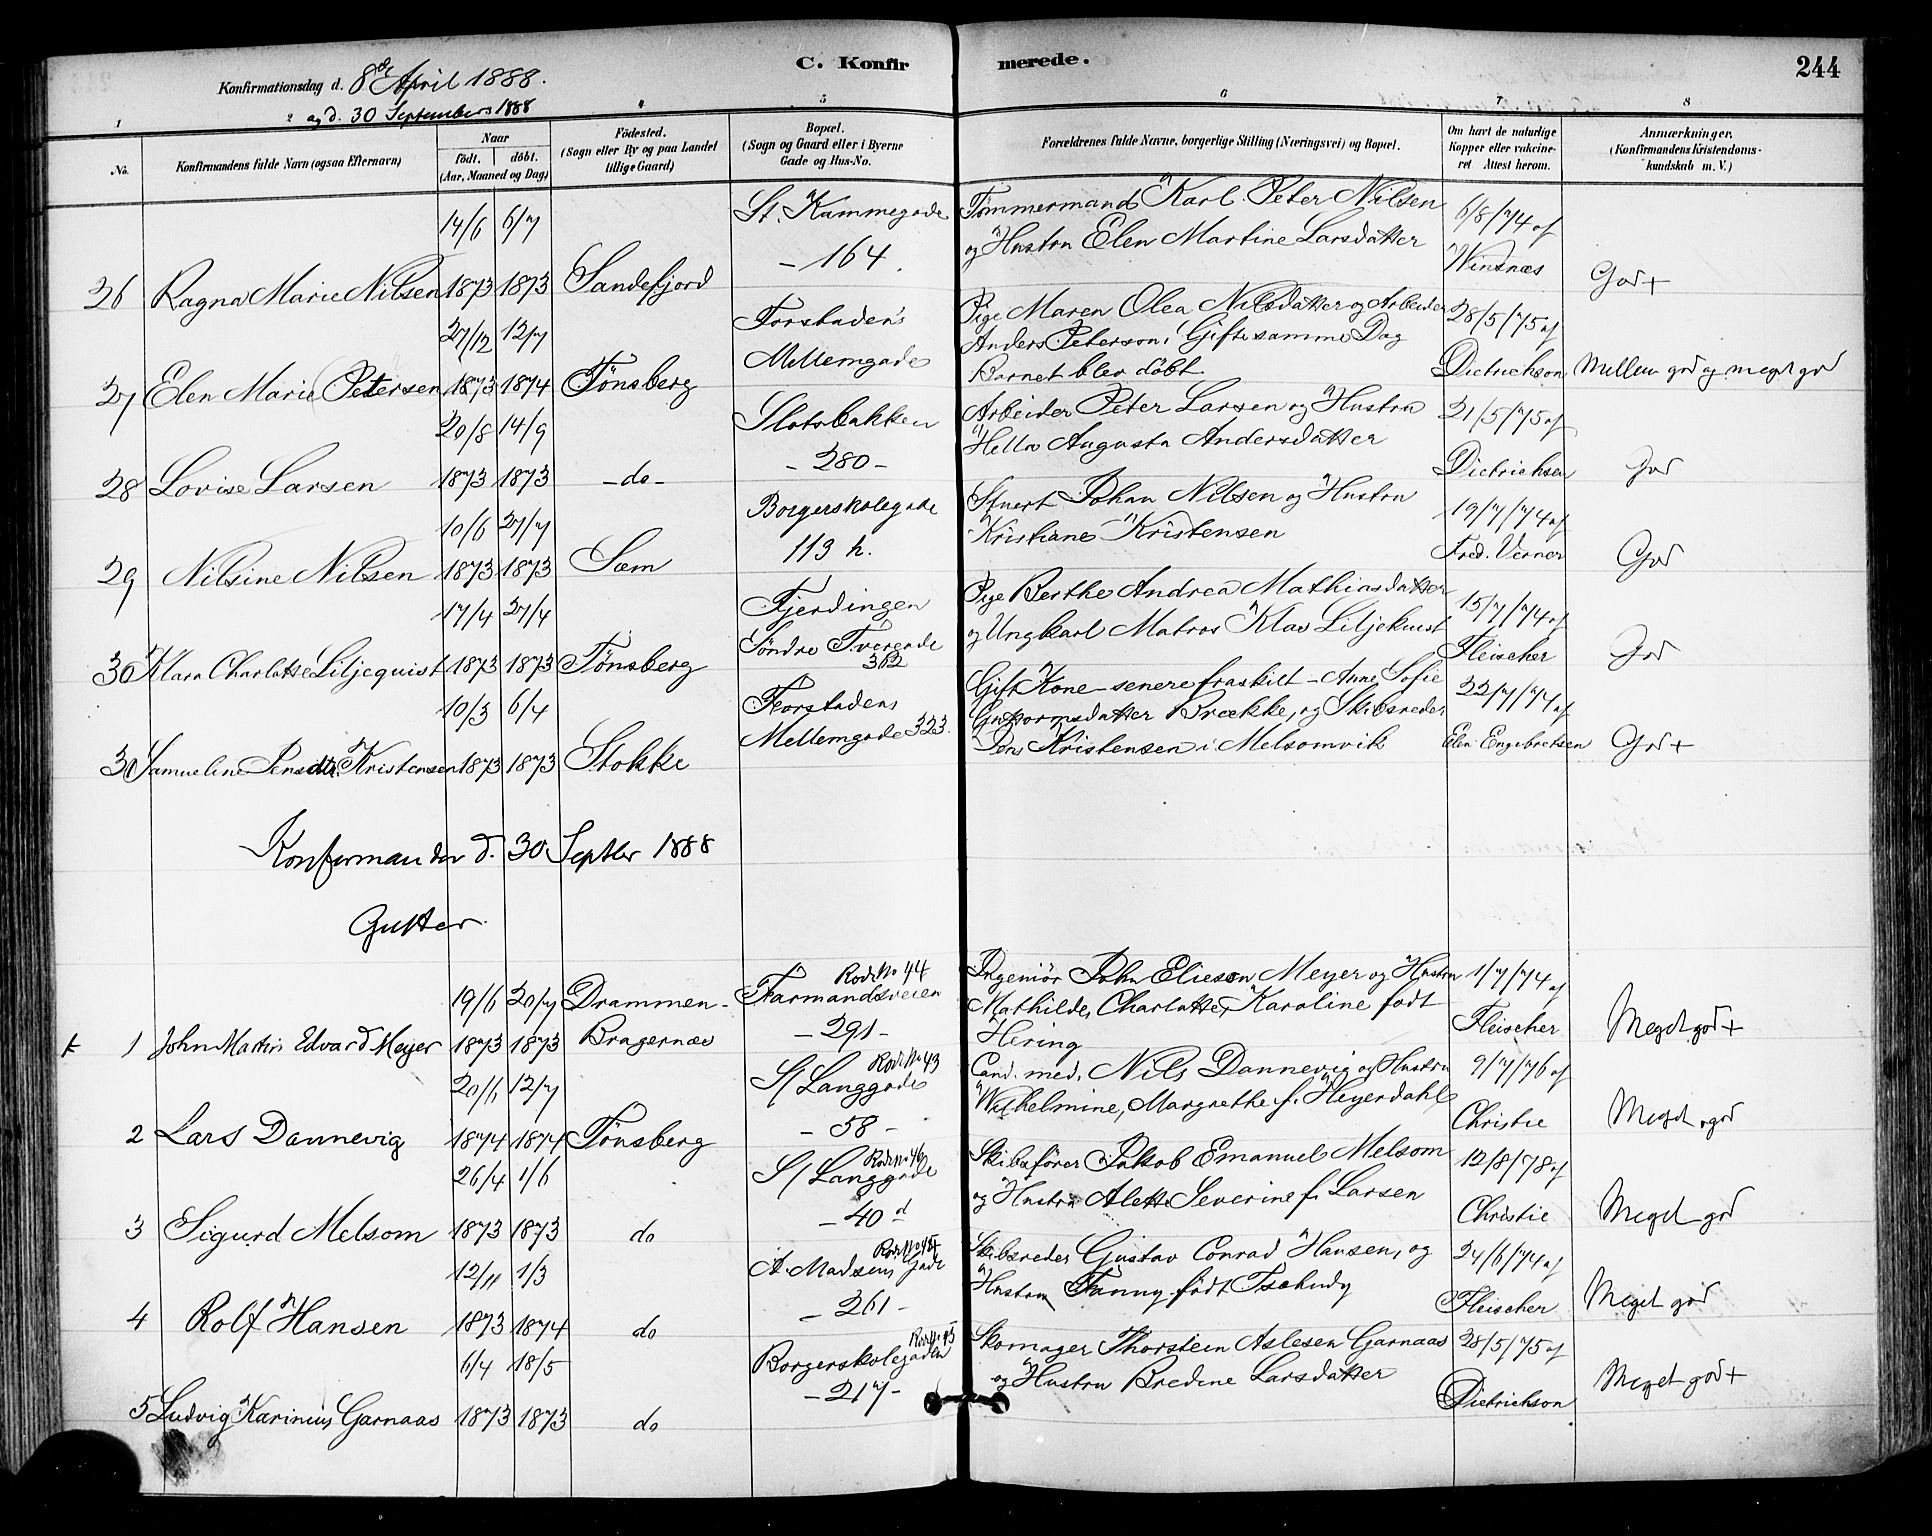 C. Konfirmerede.
244
Konfirmationsdag d. 8de April 1888.
og d. 30 Septembers 1888
1 2 4 5 6 7 8
No.
Konfirmandens fulde Navn (ogsaa Efternavn)
Naar
født. døbt.
(Aar, Maaned og Dag)
Fødested.
(Sogn eller By og paa Landet
tillige Gaard)
Bopæl.
(Sogn og Gaard eller i Byerne
Gade og Hus-No.
Forældrenes fulde Navne, borgerlige Stilling (Næringsvei) og Bopæl.
Om havt de naturlige
Kopper eller vakcine-
ret Attest herom.
Anmærkninger.
(Konfirmandens Kristendoms-
kundskab m. V.)
26 Ragna Marie Nilsen
14/6 1873
6/7 1873
Sandefjord
St. Kammegade
- 164.
Tømmermand Karl Peter Nilsen
og Hustru Elen Martine Larsdatter
6/8/74 af
Windnæs
God+
27 Elen Marie Petersen
27/12 1873
12/7 1874
Tønsberg
Forstadens
Mellemgade
Pige Maren Olea Nilsdatter og Arbeider
Anders Peterson; Gifte samme Dag
Barnet blev døbt
28/5/75 af
Dietrichson
Mellem god og meget god
28 Lovise Larsen
20/8 1873
14/9 1873
-do-
Slotsbakken
- 280 -
Arbeider Peter Larsen og Hustru
Helle Augusta Andersdatter
21/5/75 af
Dietrichsen
God
29 Nilsine Nilsen
10/6 1873
27/7 1873
Sem
Borgerskolegade
113 h.
Stuert Johan Nilsen og Hustru
Kristiane Kristensen
19/7/74 af
Fred. Verner
God
30 Klara Charlotte Liljequist
17/4 1873
27/4 1873
Tønsberg
Fjerdingen
Søndre Tvergade
362
Pige Berthe Andrea Mathiasdatter
og Ungkarl Matros Klas Liljekuist
15/7/74 af
Fleischer
God
31 Samueline Jensdtr. Kristensen
10/3 1873
6/4 1873
Stokke
Forstadens
Mellemgade 323.
Gift Kone - senere fraskilt - Anne Sofie
Guttormsdatter Brekke, og Skibsreder
Jens Kristensen i Melsomvik
22/7/74 af
Elen Engebretsen
God+
Konfirmander d. 30 Septbr 1888
Gutter
1 John Martin Edvard Meyer
19/6 1873
20/7 1873
Drammen -
Bragernæs
Rode No 44
Farmandsveien
- 291 -
Ingeniør John Elieson Meyer og Hustru
Mathilde, Charlotte, Karoline født
Hering
1/7/74 af
Fleischer
Meget god+
2 Lars Dannevig
20/6 1874
12/7 1874
Tønsberg
Rode No 43
S/ Langgade
- 58 -
Cand. med. Nils Dannevig og Hustru
Wilhelmine, Margrethe f. Heyerdahl
9/7/76 af
Christie
Meget god
3 Sigurd Melsom
26/4 1873
1/6 1873
do
S/ Langgade
- 40 d
Skibsfører Jakob Emanuel Melsom
og Hustru Alette Severine f. Larsen
12/8/78 af
Christie
Meget god
4 Rolf Hansen
12/11 1873
1/3 1874
do
A. Madsens Gade
- 261 -
Skibsreder Gustav Conrad Hansen, og
Hustru Fanny født Tschudy
24/6/74 af
Fleischer
Meget god
5 Ludvig Karinius Garnaas
6/4 1873
18/5 1873
do
Rode No 45
Borgerskolegaden
- 217 -
Skomager Thorstein Aslesen Garnaas
og Hustru Bredine Larsdatter
28/5/75 af
Dietrichson
Meget god+